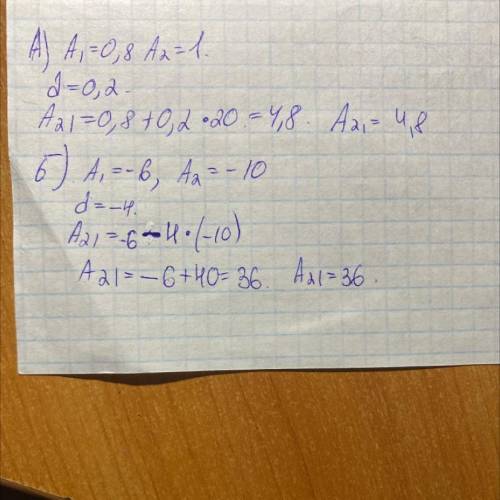 А) A₁=0,8 A₂=1.
d=0,2.
A₂₁=0,8+0,2•20=4,8. A₂₁=4,8
б) A₁=-6, A₂=-10
d=-4.
A₂₁=-6-4•(-10)
A₂₁=-6+40=36. A₂₁=36.